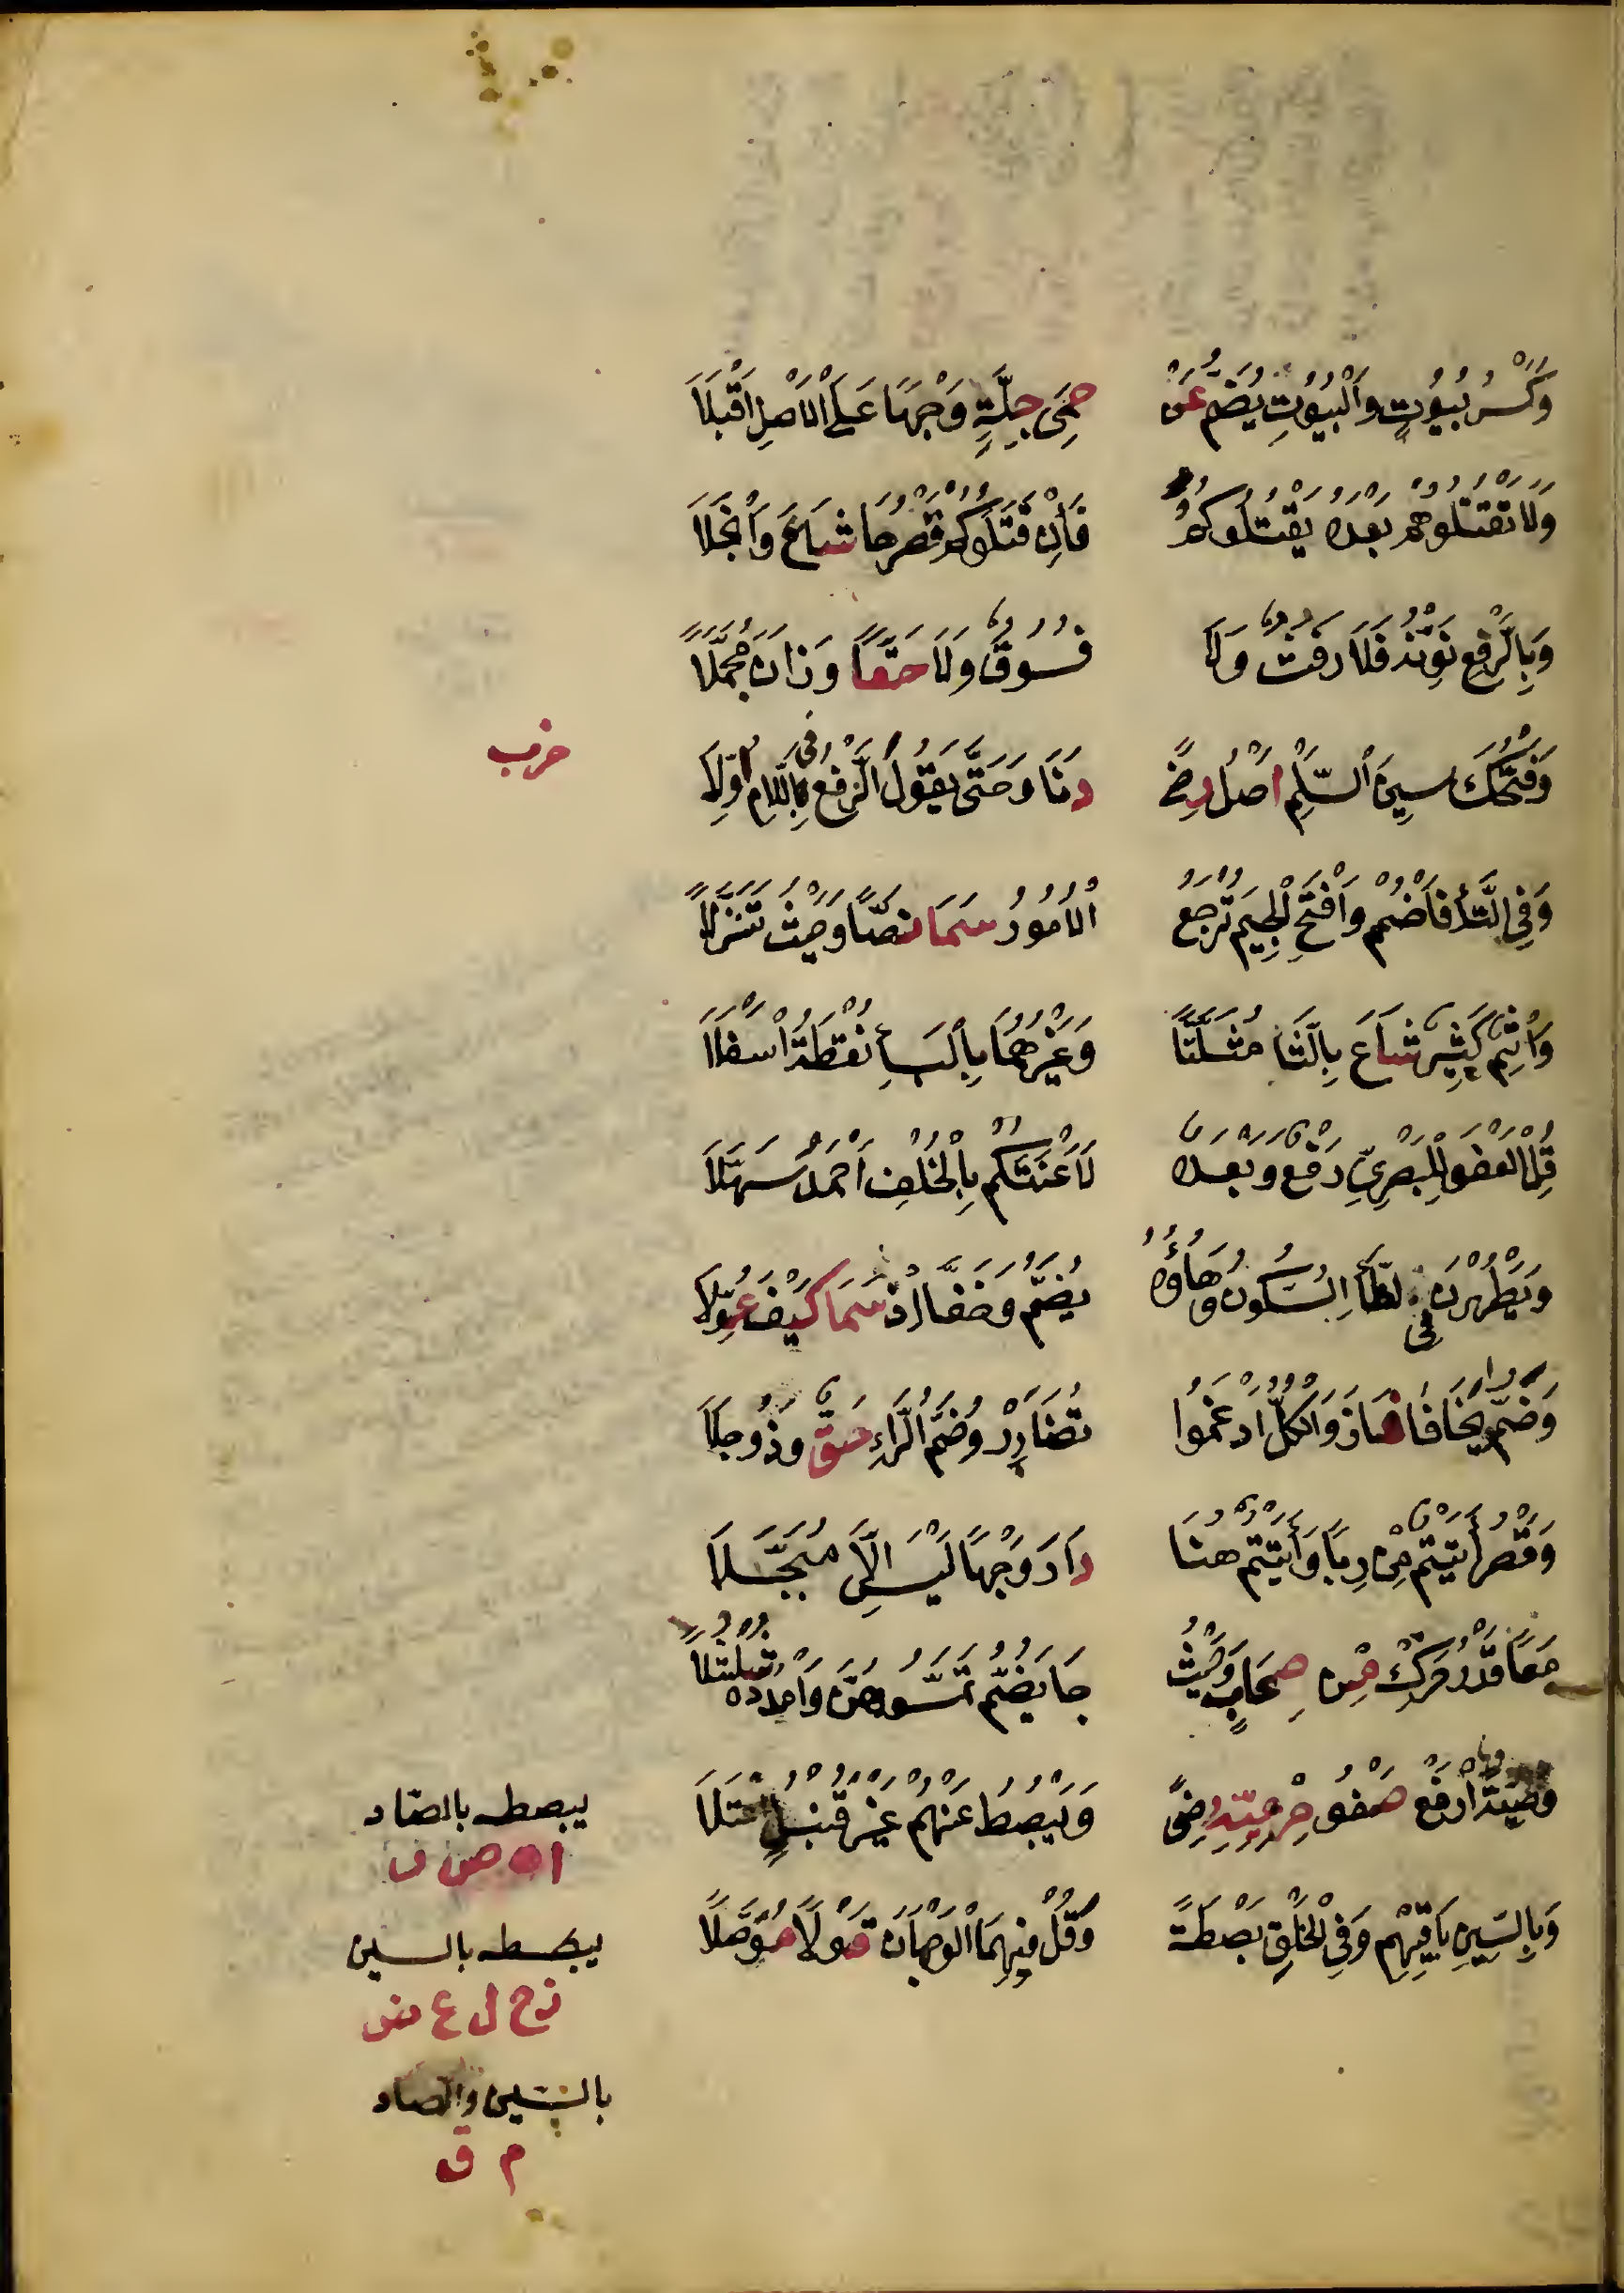 وَكَسْرُ بُيُوتٍ وَالْبُيُوتِ يُضَمُّ عَنْ حِمَى جِلَّةٍ وَجْهًا عَلَى الْاَصْلِ اَقْبَلَا
وَلَا تَقْتُلُوهُمْ بَعْدَهُ يَقْتُلُوكُمُ فَاِنْ قَتَلُوكُمْ قَصْرُهَا شَاعَ وَانْجَلَا
وَبِالرَّفْعِ نَوِّنْهُ فَلَا رَفَثٌ وَلَا فُسُوقٌ وَلَا حَقًّا وَزَانَ مُجَمَّلًا
وَفَتْحُكَ سِينَ السِّلْمِ اَصْلُ رِضًى دَنَا وَحَتَّى يَقُولَ الرَّفْعُ فِى اللَّامِ اُوِّلَا
حزب
وَفِى التَّاءِ فَاضْمُمْ وَافْتَحِ الْجِيمَ تُرْجَعُ الْاُمُورُ سَمَا نَصًّا وَحَيْثُ تَنَزَّلَا
وَاِثْمٌ كَثِيرٌ شَاعَ بِالثَّا مُثَلَّثًا وَغَيْرُهُمَا بِالْبَاءِ نُقْطَةٌ اَسْفَلَا
قُلِ الْعَفْوَ لِلْبَصْرِيِّ رَفْعٌ وَبَعْدَهُ لَاَعْنَتَكُمْ بِالْخُلْفِ اَحْمَدُ سَهَّلَا
وَيَطْهُرْنَ فِى الطَّاءِ السُّكُونُ وَهَاؤُهُ يُضَمُّ وَخَفَّا اِذْ سَمَا كَيْفَ عُوِّلَا
وَضَمُّ يَخَافَا فَازَ وَالْكُلُّ اَدْغَمُوا تُضَارَرْ وَضَمُّ الرَّاءِ حَقٌّ وَذُو جِلَا
وَقَصْرُ أَتَيْتُمْ مِنْ رِبًا وَأَتَيْتُمُ هُنَا دَارَ وَجْهًا لَيْسَ اِلَّا مُبَجَّلَا
مَعًا قَدْرُ حَرِّكْ مِنْ صِحَابٍ وَحَيْثُ جَا يُضَمُّ تَمَسُّوهُنَّ وَامْدُدْهُ شُلْشُلَا
وَصِيَّةٌ ارْفَعْ صَفْوُ حِرْمِيِّهِ رِضًى وَيَبْصُطُ عَنْهُمْ غَيْرَ قُنْبُلٍ اعْتَلَا
يبصط بالصاد
ا ه ص ن ر
وَبِالسِّينِ بَاقِيهِمْ وَفِى الْخَلْقِ بَصْطَةً وَقُلْ فِيهِمَا الْوَجْهَانِ قَوْلًا مُوَصَّلَا
يبصط بالسين
ز ح ل ع ض
بالسين والصاد
م ق